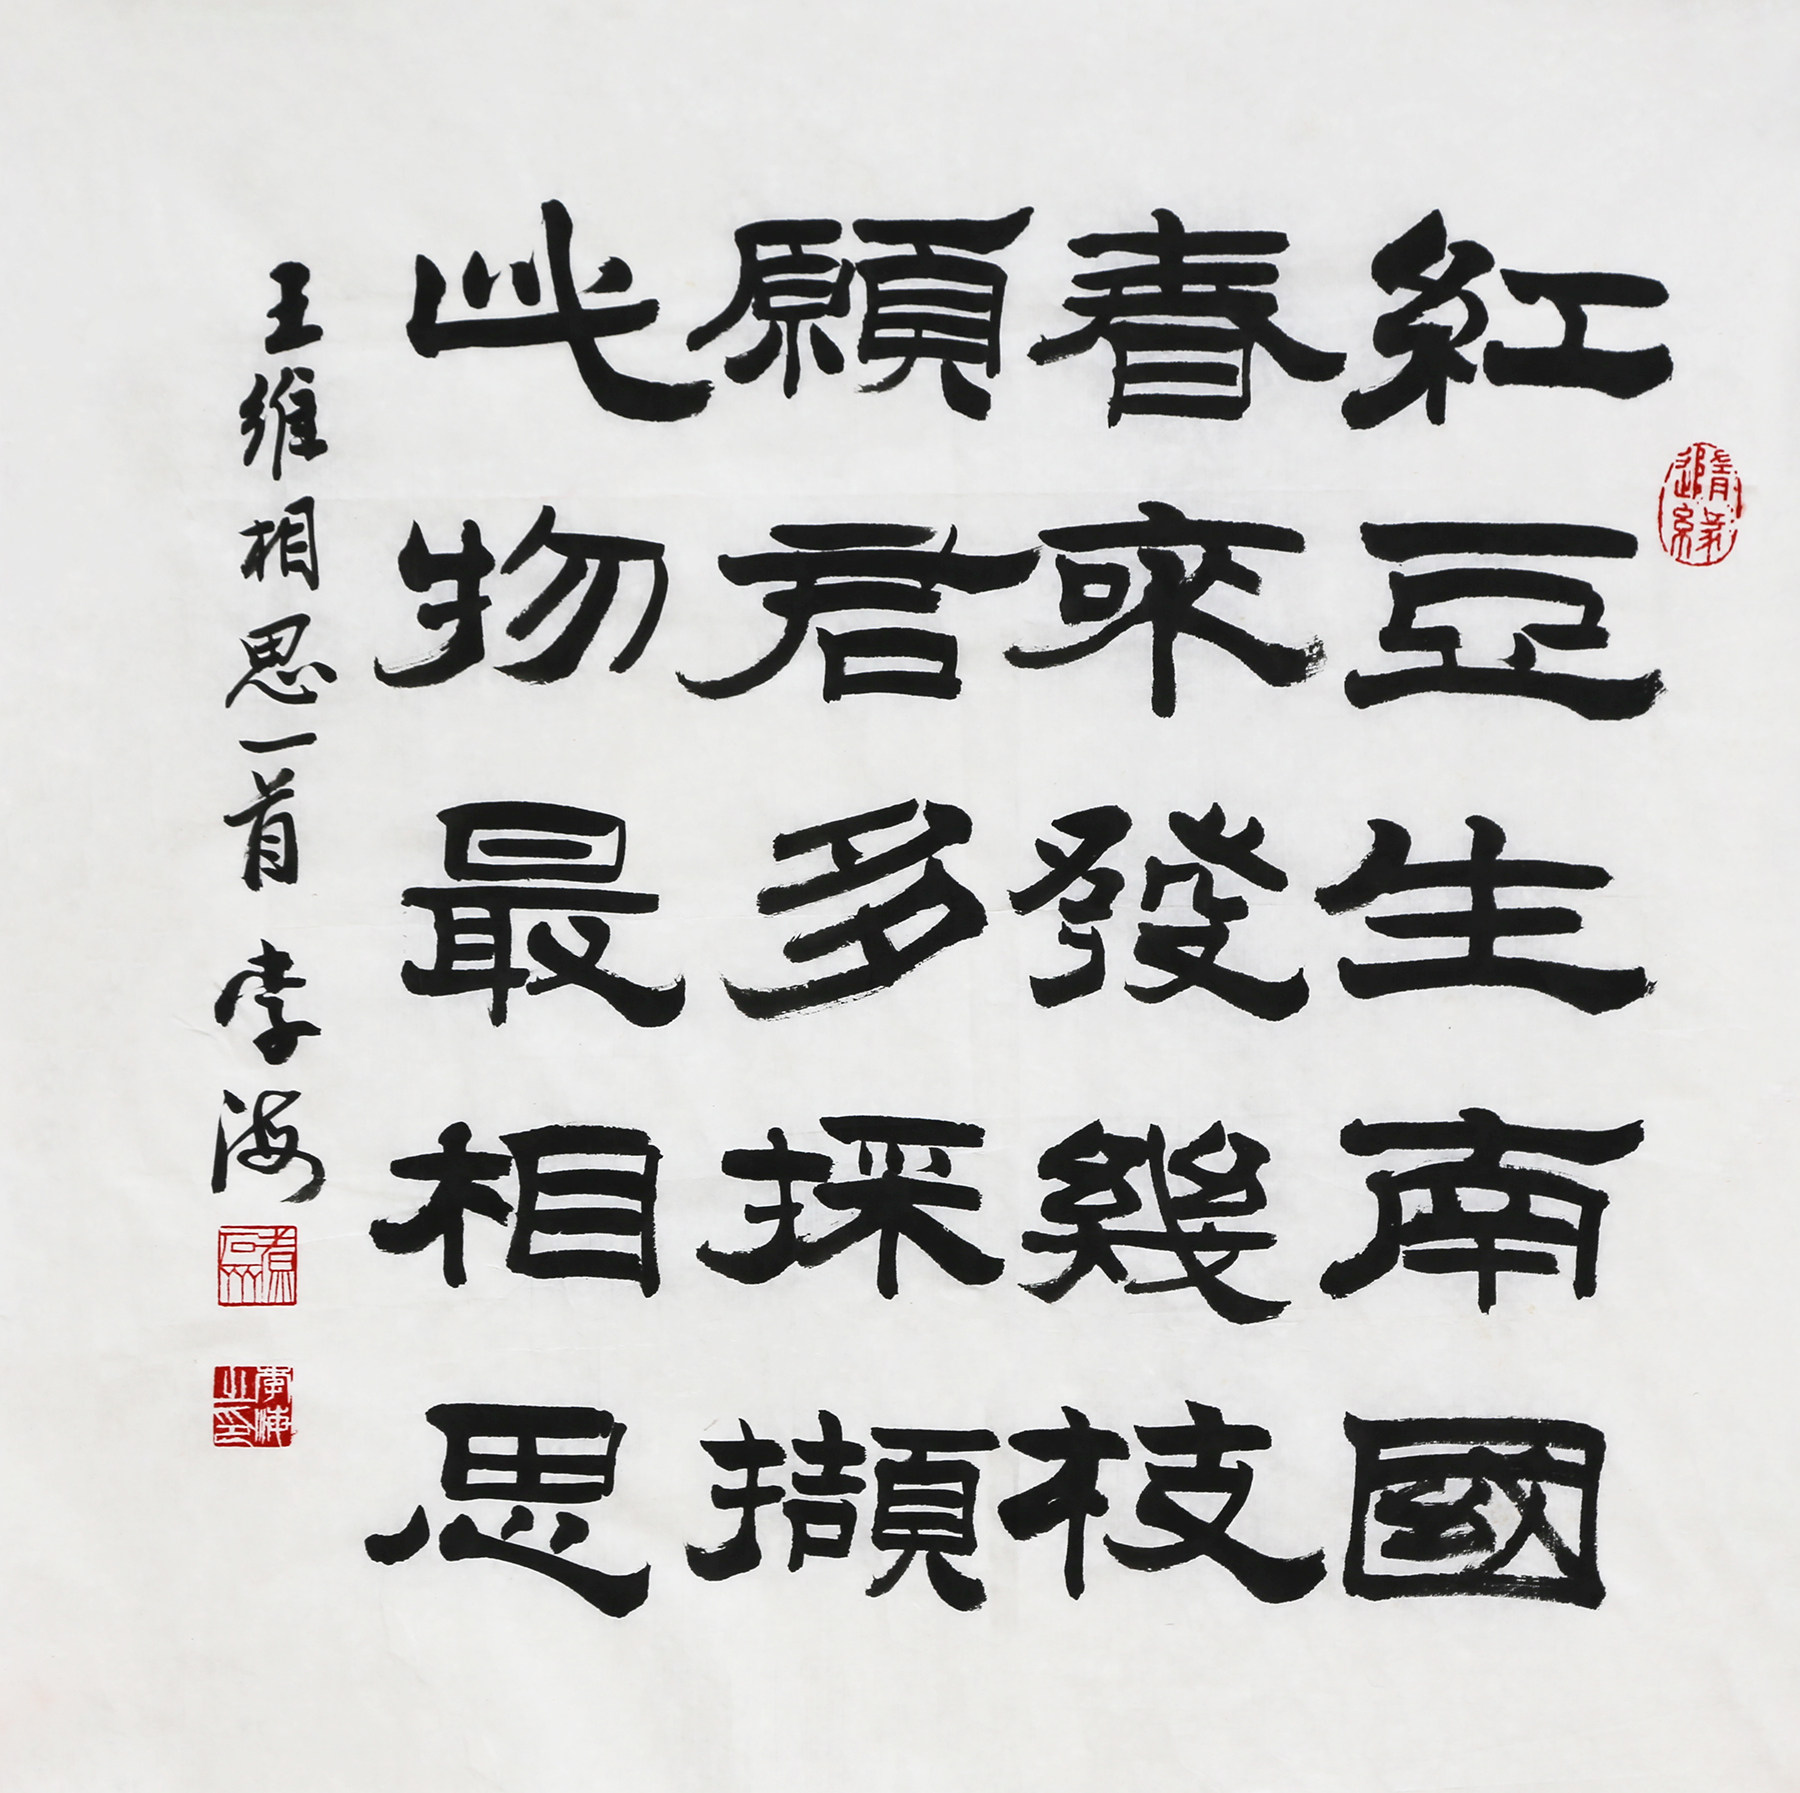 紅豆生南國
春來發幾枝
願君多採擷
此物最相思
王維相思一首 李海
隨緣
李海之印